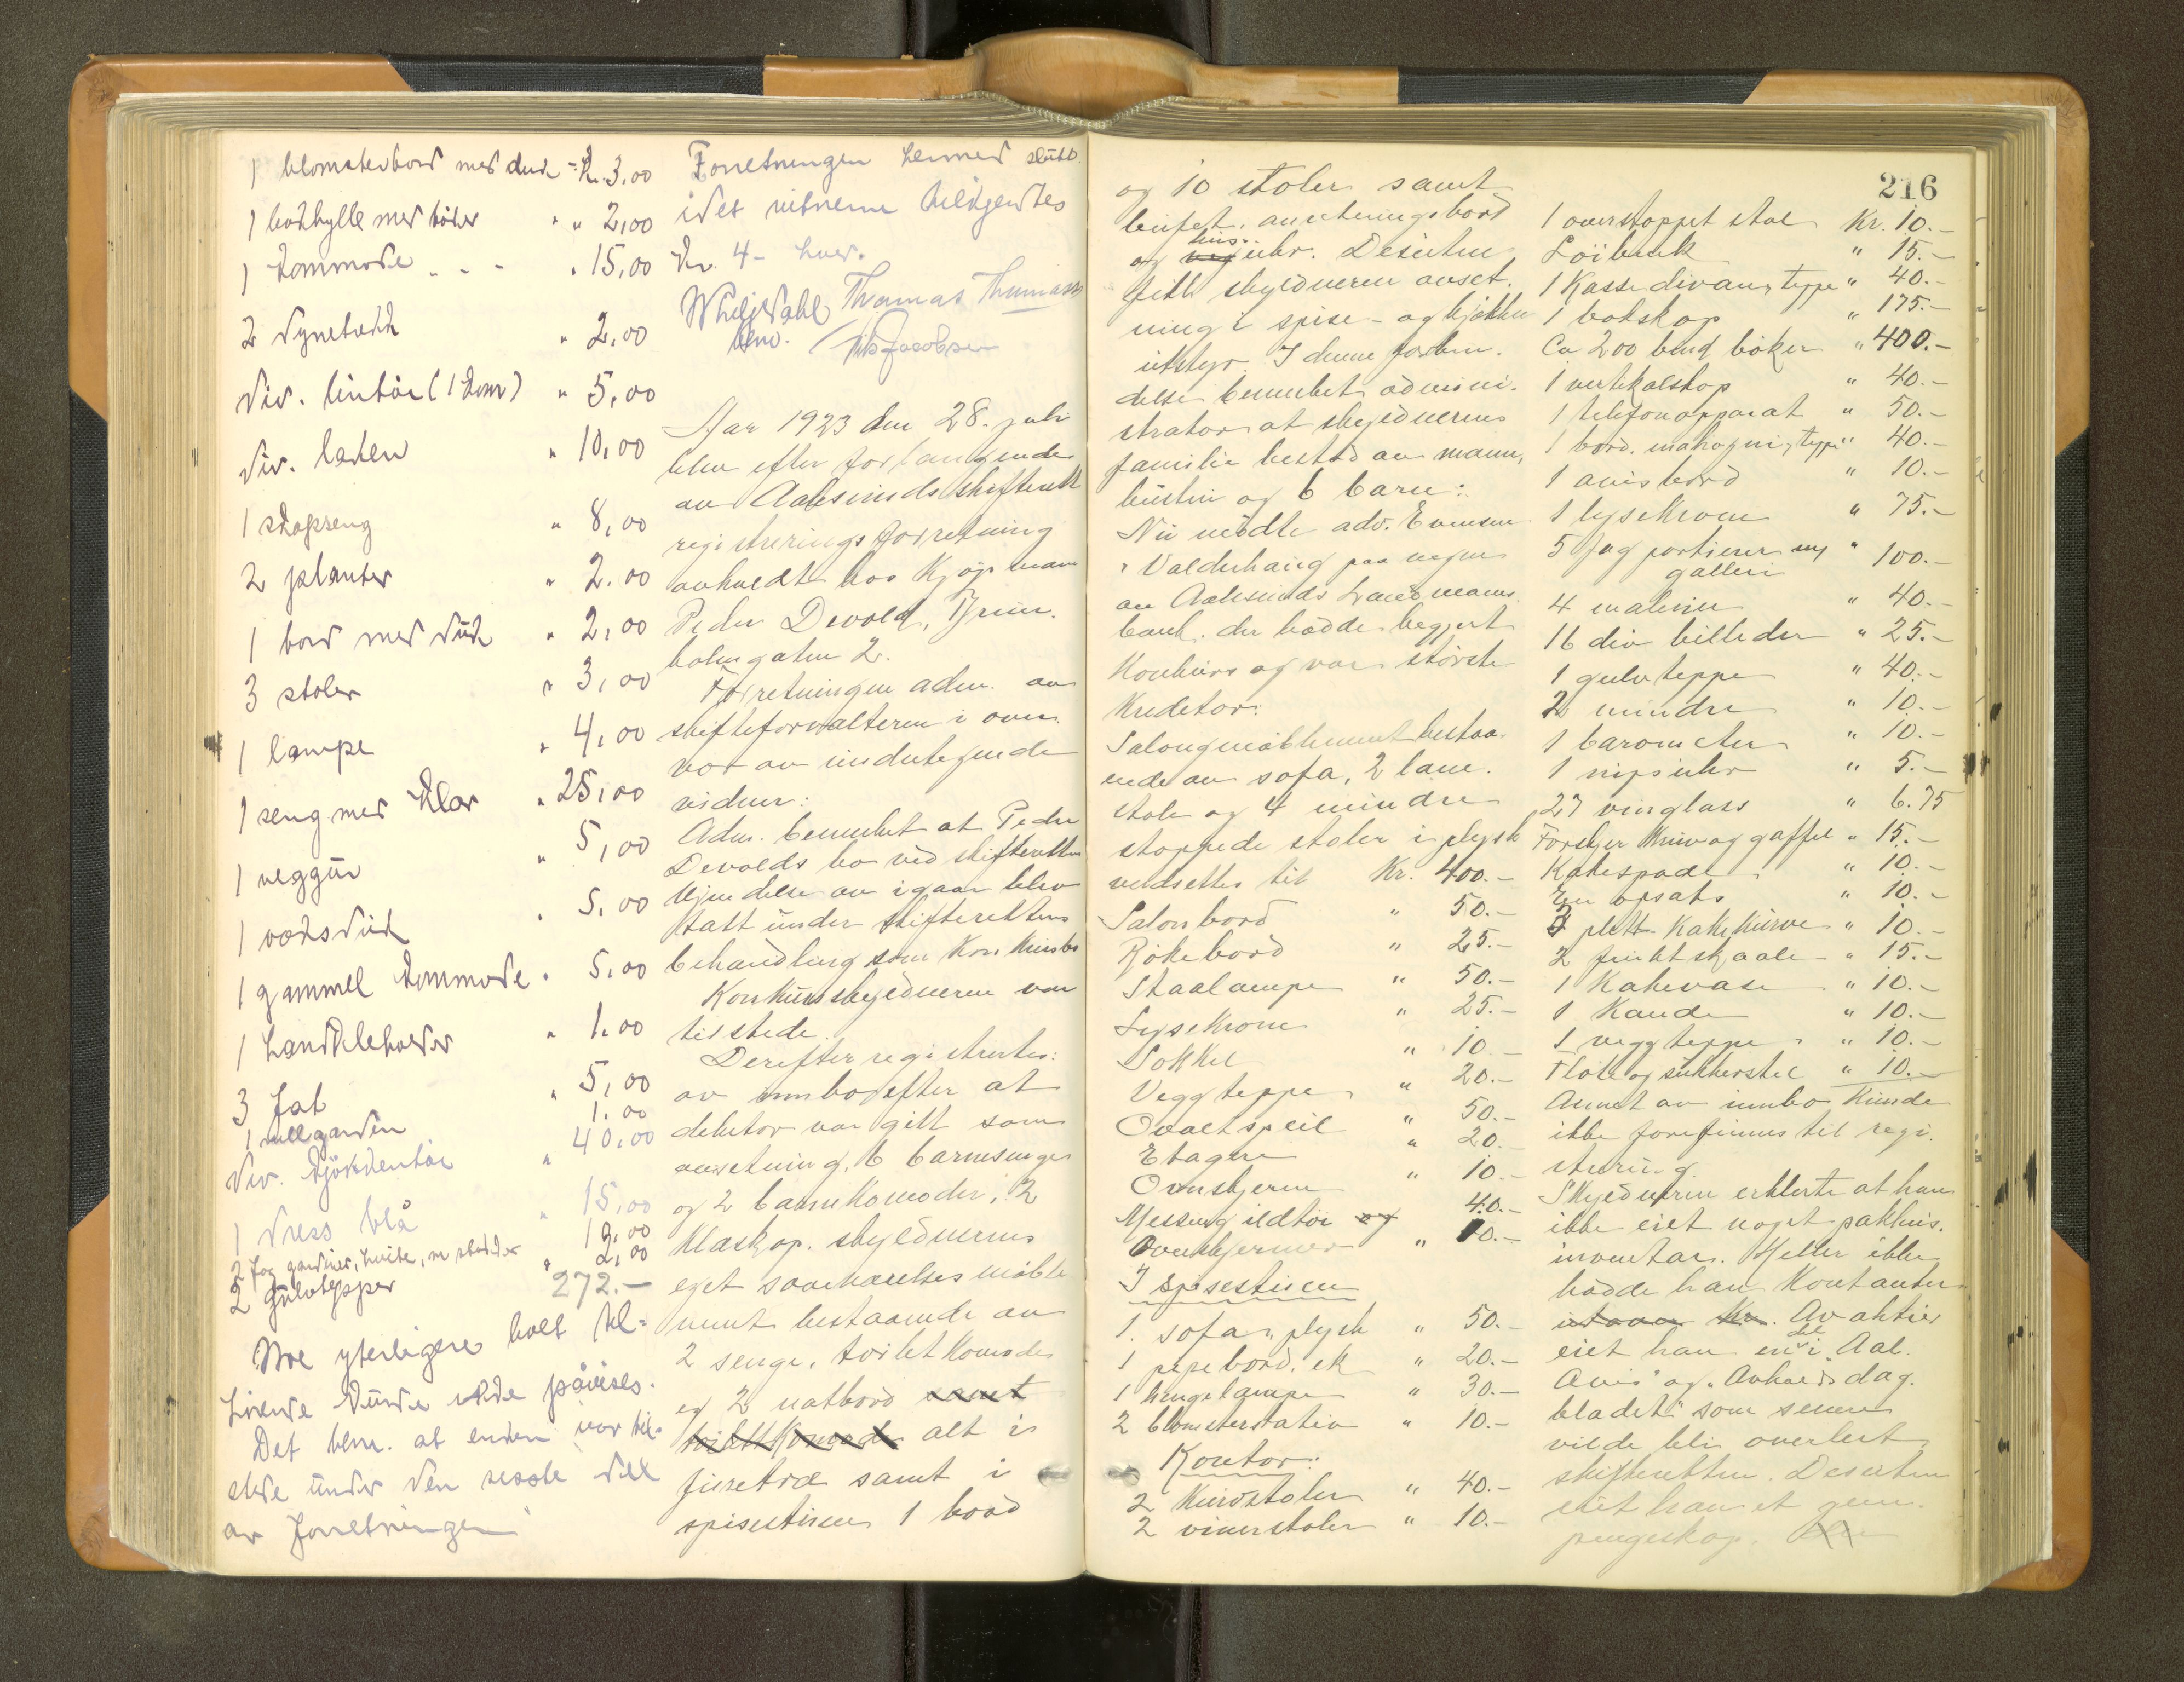 1 blomsterbord med duk - Kr. 3,00
1 bokhylle med bøker " " 2,00
1 kommode - - - " 15,00
2 dynetrekk " 2,00
Div. lintøi (1 kom) " 5,00
Div. laken " 10,00
1 skapseng " 8,00
2 planter " 2.00
1 bord med duk " 2,00
3 stoler " 3,00
1 lampe " 4,00
1 seng med klær " 25,00
1 veggur " 5,00
1 voksduk " 5,00
1 gammel kommode " 5,00
1 handkleholder " 1,00
3 fat " 5,00
1 rullgardin 1.00
Div. kjøkkentøi " 40,00
1 dress blå " 15,00
2 fag gardiner, hvite, m 19,00
2 gulvtepper " 2,00
272.-
Noe yterligere boet til-
hørende kunde ikke påvises.
Det bem. at enken var til-
stede under den første del
av forretningen
Forretningen hermed slutt.
idet vitnerne tilkjendtes
Kr. 4- hver.
Thomas Thomassen
Jacobsen
Aar 1923 den 28. juli
blev efter forlangende
av Aalesunds skifterett
registreringsforretning
avholdt hos Kjøpmann
Peder Devold,
holmgaten 2.
Forretningen adm. av
skifteforvalteren i over-
vær av undertegnede
vidner:
Adm. bemerket at Peder
Devolds bo ved skifterettens
kjendelse av igaar blev
tatt under skifterettens
behandling som Konkursbo
Konkursskyldneren var
tilstede.
Derefter registrertes:
av innbo efter at
debitor var gitt som
avsetning. 6 barnesenger
og 2 barnekomoder, 2
Klæskap, skyldnerens
eget soveværelsesmøble-
ment bestaaende av
2 senge, toiletkomode
og 2 natbord samt
toiletkomode alt i
furetræ samt i
spisestuen 1 bord
216
og 10 stoler samt
bufet, anretningsbord
og veg hus-uhr. Desuten
fikk skyldneren avset-
ning i spise- og kjøkken
utstyr. I denne forbin-
delse bemerket admini-
strator at skyldnerens
familie bestod av mann,
hustru og 6 barn:
Nu mødte adv. Evensen
Valderhaug paa vegne
av Aalesunds Landmans-
bank, der hadde begjært
Konkurs og var største
Kreditor:
Salongmøblement bestaa-
ende av sofa, 2 læne-
stole og 4 mindre
stoppede stoler i plysh
verdsettes til Kr. 400.-
Salonbord " 50.-
Røkebord " 25.-
Staalampe " 50.-
Lysekrone " 25.-
Sokkel " 10.-
Veggteppe " 20.-
Ovalt speil " 50.-
Etagere " 20.-
Ovnskjerm " 10.-
Messing ildtøi og 40.-
Ovnskjermer " 10.-
I spisestuen
1. sofa, plysh " 50.-
1 pipebord, ek " 20.-
1 hengelampe " 30.-
2 blomsterstativ " 10.-
Kontor:
2 Kurvstoler " 40.-
2 vinerstoler " 10.-
1 overstoppet stol Kr. 10.-
Løibenk " 15.-
1 Kassedivan, teppe " 40.-
1 bokskap " 175.-
Ca 200 bind bøker " 400.-
1 vertikalskap " 40.-
1 telefonapparat " 50.-
1 bord, mahogni, teppe " 40.-
1 avisbord " 10.-
1 lysekrone " 75.-
5 fag portierer m/ " 100.-
galleri
4 malerier " 40.-
16 div billeder " 25.-
1 gulvteppe " 40.-
2 mindre " 10.-
1 barometer " 10.-
1 nipsuhr " 5.-
27 vinglass " 6.75
Forskjer Kniv og gaffel " 15.-
Kakespade " 10.-
En opsats " 10.-
2 plett. Kakekurve " 10.-
2 fruktskaale " 15.-
1 Kakevase " 10.-
1 Kande " 10.-
1 veggteppe " " 10.-
Fløte og sukkerstel " 10.-
Annet av innbo Kunde
ikke forefinnes til regi-
strering.
Skyldneren erklerte at han
ikke eiet noget pakhus-
inventar. Heller ikke
hadde han Kontanter
utover Kr. Av aktier
eiet han en del i "Aal.
Avis" og "Avholdsdag-
bladet" som senere
vilde bli overlevert
skifteretten. Desuten
eiet han et gem.
pengeskap.